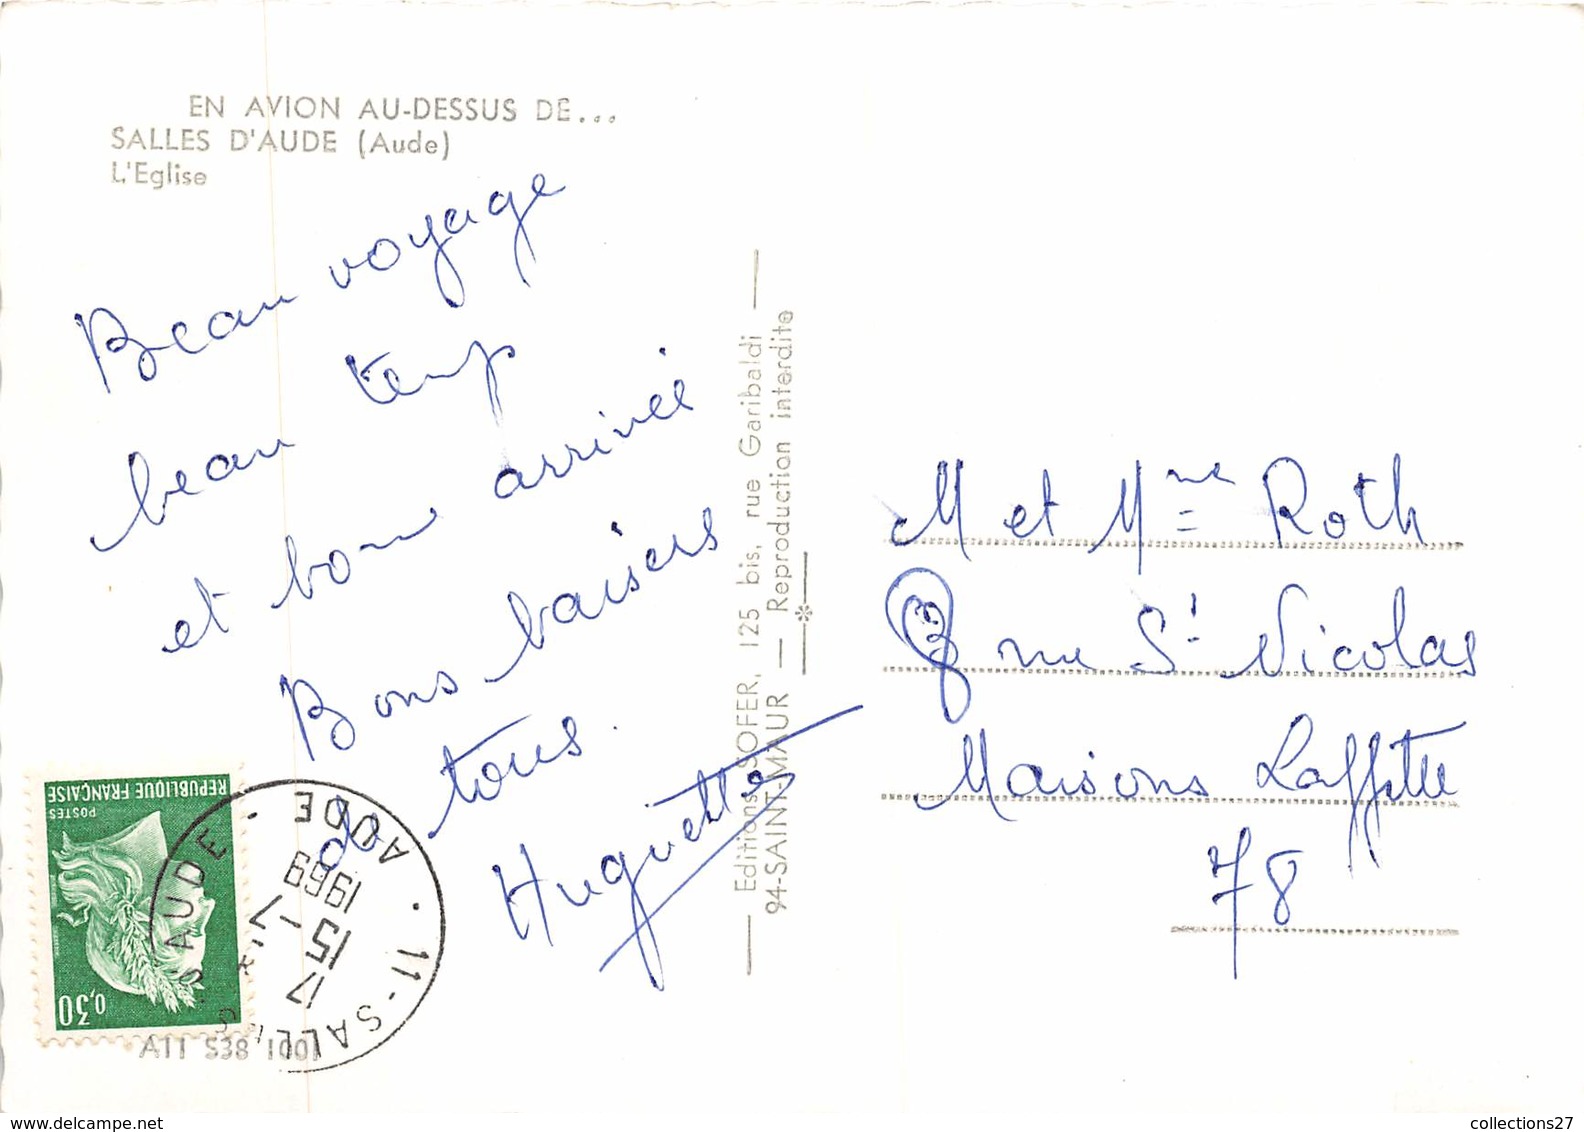 EN AVION AU-DESSUS DE...
SALLES D'AUDE (Aude)
L'Eglise
Beau voyage
beau temps
et bonne arrivée
Bons baisers
de tous.
Huguette
Editions SOFER, 125 bis, rue Garibaldi
94-SAINT-MAUR — Reproduction interdite
M et Mme Roth
rue St Nicolas
Maisons Laffitte
78
REPUBLIQUE FRANÇAISE
POSTES
0,30
11-SALLES D'AUDE
AUDE
17
15-7
1969
A11 S38 1001
collections27